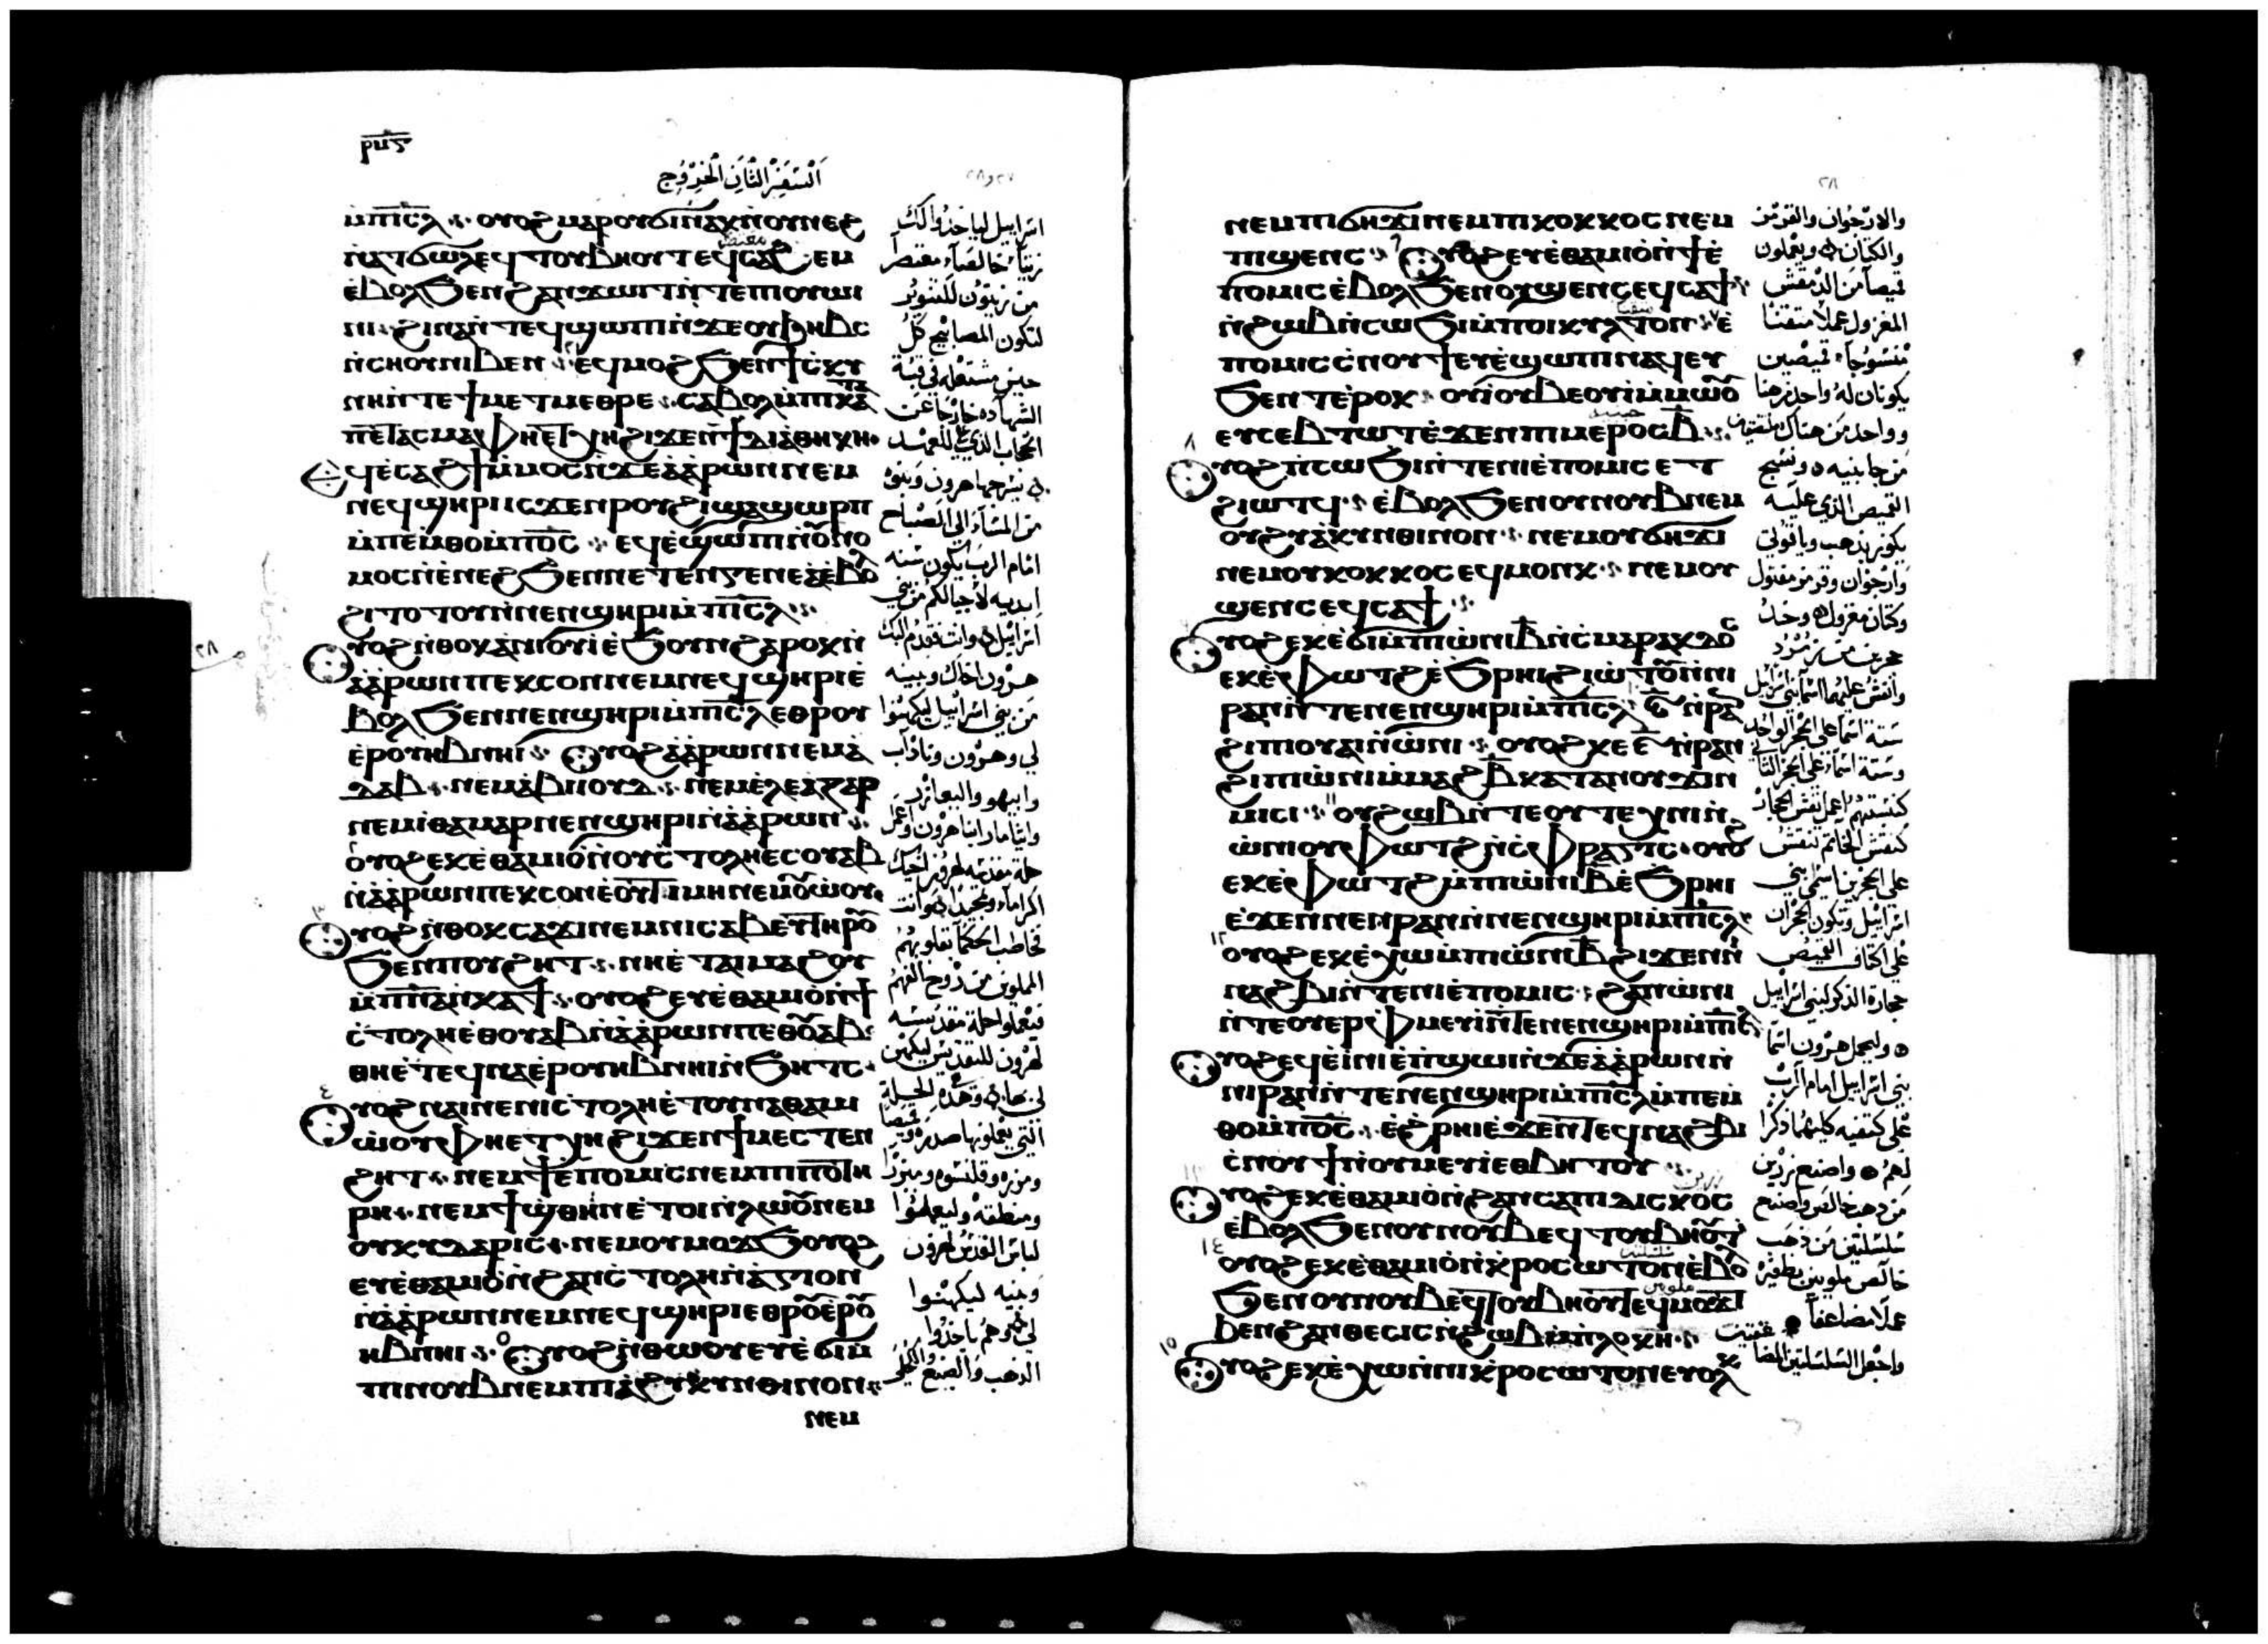 ⲣⲡⲋ
السفر الثاني الخروج
ⲙ̀ⲡⲓⲥ̅ⲗ̅ ⲟⲩⲟϩ ⲙⲁⲣⲟⲩϭⲓⲛⲁⲕ ⲛ̀ⲟⲩⲛⲉϩ
ⲉ̀ⲃⲟⲗ ϧⲉⲛ ϩⲁⲛϫⲱⲓⲧ ⲛ̀ⲧⲉ ⲡⲓⲟⲩⲱⲓ
ⲛⲓ ϩⲓⲛⲁ ⲛ̀ⲧⲉϥϣⲱⲡⲓ ⲛ̀ϫⲉ ⲟⲩϧⲏⲃⲥ
ⲛ̀ⲥⲏⲟⲩ ⲛⲓⲃⲉⲛ ⲉϥⲙⲟϩ ϧⲉⲛ ϯⲥ̀ⲕⲩ
ⲛⲏ ⲛ̀ⲧⲉ ϯⲙⲉⲧⲙⲉⲑⲣⲉ ⲥⲁⲃⲟⲗ ⲙ̀ⲡⲓⲕⲁ
ⲡⲉⲧⲁⲥⲙⲁ ⲫⲏⲉⲧⲭⲏ ϩⲓϫⲉⲛ ϯⲇⲓⲁⲑⲏⲕⲏ
ⲛⲉϥϣⲏⲣⲓ ⲓⲥϫⲉⲛ ⲣⲟⲩϩⲓ ϣⲁ ϣⲱⲣⲡ
ⲙ̀ⲡⲉⲙⲑⲟ ⲙ̀ⲡⲟ̅ⲥ̅ ⲉϥⲉ̀ϣⲱⲡⲓ ⲛ̀ⲟⲩⲛⲟ
ⲙⲟⲥ ⲛ̀ⲉ̀ⲛⲉϩ ϧⲉⲛ ⲛⲉⲧⲉⲛⲅⲉⲛⲉⲁ ⲉ̀ⲃⲟⲗ
ϩⲓⲧⲟⲧⲟⲩ ⲛ̀ⲛⲉⲛϣⲏⲣⲓ ⲙ̀ⲡⲓⲥ̅ⲗ̅
ⲟⲩⲟϩ ⲛ̀ⲑⲟⲕ ⲁ̀ⲛⲓⲟⲩⲓ̀ ⲉ̀ϧⲟⲩⲛ ϩⲁⲣⲟⲕ ⲛ̀
ⲁ̀ⲁ̀ⲣⲱⲛ ⲡⲉⲕⲥⲟⲛ ⲛⲉⲙ ⲛⲉϥϣⲏⲣⲓ ⲉ̀
ⲃⲟⲗ ϧⲉⲛ ⲛⲉⲛϣⲏⲣⲓ ⲙ̀ⲡⲓⲥ̅ⲗ̅ ⲉⲑⲣⲟⲩ
ⲉⲣⲟⲩⲏⲃ ⲛⲏⲓ ⲟⲩⲟϩ ⲁ̀ⲁ̀ⲣⲱⲛ ⲛⲉⲙ ⲛⲁ̀
ⲇⲁⲃ ⲛⲉⲙ ⲁ̀ⲃⲓⲟⲩⲇ ⲛⲉⲙ ⲉ̀ⲗⲉⲁⲍⲁⲣ
ⲛⲉⲙ ⲓ̀ⲑⲁⲙⲁⲣ ⲛⲉⲛϣⲏⲣⲓ ⲛ̀ⲁ̀ⲁ̀ⲣⲱⲛ
ⲟⲩⲟϩ ⲉⲕⲉ̀ⲑⲁⲙⲓⲟ̀ ⲛ̀ⲟⲩⲥ̀ⲧⲟⲗⲏ ⲉⲥⲟⲩⲁⲃ
ⲛ̀ⲁ̀ⲁ̀ⲣⲱⲛ ⲡⲉⲕⲥⲟⲛ ⲉ̀ⲟⲩⲧⲓⲙⲏ ⲛⲉⲙ ⲟⲩⲱ̀ⲟⲩ
ⲟⲩⲟϩ ⲛ̀ⲑⲟⲕ ⲥⲁϫⲓ ⲛⲉⲙ ⲛⲓⲥⲁⲃⲉⲩ ⲧⲏⲣⲟⲩ
ϧⲉⲛ ⲡⲟⲩϩⲏⲧ ⲛⲏⲉ̀ⲧⲁⲓⲙⲁϩⲟⲩ
ⲙ̀ⲡ̅ⲛ̅ⲁ̅ ⲛ̀ⲕⲁϯ ⲟⲩⲟϩ ⲉⲩⲉ̀ⲑⲁⲙⲓⲟ̀ ⲛ̀ϯ
ⲥ̀ⲧⲟⲗⲏ ⲉⲑⲟⲩⲁⲃ ⲛ̀ⲁ̀ⲁ̀ⲣⲱⲛ ⲡⲉⲑⲟⲩⲁⲃ
ⲑⲏⲉ̀ⲧⲉϥⲛⲁⲉⲣⲟⲩⲏⲃ ⲛⲏⲓ ⲛ̀ϧⲏⲧⲥ
ⲟⲩⲟϩ ⲛⲁⲓ ⲛⲉ ⲛⲓⲥ̀ⲧⲟⲗⲏ ⲉ̀ⲧⲟⲩⲛⲁⲑⲁⲙ
ⲓⲱ̀ⲟⲩ ⲫⲏⲉⲧⲭⲏ ϩⲓϫⲉⲛ ϯⲙⲉⲥⲧⲉⲛ
ϩⲏⲧ ⲛⲉⲙ ϯⲉⲡⲟⲙⲓⲥ ⲛⲉⲙ ⲡⲓⲡⲟⲧⲏ
ⲣⲏ ⲛⲉⲙ ϯϣⲑⲏⲛ ⲉ̀ⲧⲟⲓ ⲛ̀ⲗⲱⲟⲩ ⲛⲉⲙ
ⲟⲩⲕⲩⲇⲁⲣⲓⲥ ⲛⲉⲙ ⲟⲩⲙⲟϫϧ ⲟⲩⲟϩ
ⲉⲩⲉ̀ⲑⲁⲙⲓⲟ̀ ⲛ̀ϩⲁⲛⲥ̀ⲧⲟⲗⲏ ⲛ̀ⲁ̀ⲅⲓⲟⲛ
ⲛ̀ⲁ̀ⲁ̀ⲣⲱⲛ ⲛⲉⲙ ⲛⲉϥϣⲏⲣⲓ ⲉⲑⲣⲟⲩⲉⲣⲟⲩ
ⲏⲃ ⲛⲏⲓ ⲟⲩⲟϩ ⲛ̀ⲑⲱⲟⲩ ⲉⲩⲉ̀ϭⲓ ⲙ̀
ⲡⲓⲛⲟⲩⲃ ⲛⲉⲙ ⲡⲓϩⲩⲁ̀ⲕⲩⲛⲑⲓⲛⲟⲛ
ⲛⲉⲙ
اسراييل لياخذوا لك
من زيتون للتنوير
لتكون المصابيح كل
حين مشتعله في قبة
الشهاده خارجا عن
من المساء الى الصباح
امام الرب يكون سنه
ابديه لاجيالكم من بني
اسراييل وانت فقدم اليك
هرون اخاك وبنيه
من بني اسراييل ليكهنوا
لي وهرون وناداب
وابيهو واليعازر
وايثامار ابنا هرون واعمل
حلة مقدسه لهرون اخيك
المملوين من روح الفهم
فيعملوا حلة مقدسه
لهرون للتقديس ليكهن
ومنطقه وليعملوا
لباس القدس لهرون
وبنيه ليكهنوا
ⲛⲉⲙ ⲡⲓϭⲏϫⲓ ⲛⲉⲙ ⲡⲓⲕⲟⲕⲕⲟⲥ ⲛⲉⲙ
ⲡⲓϣⲉⲛⲥ ⲟⲩⲟϩ ⲉⲩⲉ̀ⲑⲁⲙⲓⲟ̀ ⲛ̀ϯⲉ̀
ⲡⲟⲙⲓⲥ ⲉ̀ⲃⲟⲗ ϧⲉⲛ ⲟⲩϣⲉⲛⲥ ⲉϥⲥⲁϯ
ⲛ̀ϩⲱⲃ ⲛ̀ⲥⲱϧⲓ ⲙ̀ⲡⲟⲓⲕⲩⲗⲧⲟⲛ ⲉ̀
ⲡⲟⲙⲓⲥ ⲥ̀ⲛⲟⲩϯ ⲉⲩⲉ̀ϣⲱⲡⲓ ⲛⲁϥ ⲉⲩ
ϧⲉⲛ ⲧⲉⲣⲟⲕ ⲟⲩⲓ̀ ⲟⲩⲃⲉ ⲟⲩⲓ̀ ⲙ̀ⲙⲱⲟⲩ
ⲉⲩⲥⲉⲃⲧⲱⲧ ⲉ̀ϫⲉⲛ ⲡⲓⲙⲉⲣⲟⲥ ⲃ̅
ⲟⲩⲟϩ ⲡⲥⲱϧⲓ ⲛ̀ⲧⲉ ⲛⲓⲉ̀ⲡⲟⲙⲓⲥ ⲉⲧ
ϩⲓⲱⲧϥ ⲉ̀ⲃⲟⲗ ϧⲉⲛ ⲟⲩⲛⲟⲩⲃ ⲛⲉⲙ
ⲟⲩϩⲩⲁ̀ⲕⲩⲛⲑⲓⲛⲟⲛ ⲛⲉⲙ ⲟⲩϭⲏϫⲓ
ⲛⲉⲙ ⲟⲩⲕⲟⲕⲕⲟⲥ ⲉϥⲙⲟⲛⲕ ⲛⲉⲙ ⲟⲩ
ϣⲉⲛⲥ ⲉϥⲥⲁϯ
ⲟⲩⲟϩ ⲉⲕⲉ̀ϭⲓ ⲙ̀ⲡⲓⲱ̀ⲛⲓ ⲃ̅ ⲛ̀ⲥ̀ⲙⲁⲣⲁⲕⲇⲟⲥ
ⲉⲕⲉ̀ⲫⲱⲧϩ ⲉ̀ϧⲣⲏⲓ ϩⲓⲱ̀ⲧⲟⲩ ⲛ̀ⲛⲓ
ⲣⲁⲛ ⲛ̀ⲧⲉ ⲛⲉⲛϣⲏⲣⲓ ⲙ̀ⲡⲓⲥ̅ⲗ̅ ⲋ̅ ⲛ̀ⲣⲁⲛ
ϩⲓ ⲡⲓⲟⲩⲁⲓ ⲛ̀ⲱ̀ⲛⲓ ⲟⲩⲟϩ ⲕⲉ ⲋ̅ ⲛ̀ⲣⲁⲛ
ϩⲓ ⲡⲓⲱ̀ⲛⲓ ⲙ̀ⲙⲁϩ ⲃ̅ ⲕⲁⲧⲁ ⲛⲟⲩϫⲓⲛ
ⲙⲓⲥⲓ ⲟⲩϩⲱⲃ ⲛ̀ⲧⲉ ⲟⲩⲧⲉⲭⲛⲏ ⲛ̀
ⲱ̀ⲛⲓ ⲟⲩⲫⲱⲧϩ ⲛ̀ⲥ̀ⲫⲣⲁⲅⲓⲥ ⲟⲩⲟϩ
ⲉⲕⲉ̀ⲫⲱⲧϩ ⲙ̀ⲡⲓⲱ̀ⲛⲓ ⲃ̅ ⲉ̀ϧⲣⲏⲓ
ⲉ̀ϫⲉⲛ ⲛⲉⲛⲣⲁⲛ ⲛ̀ⲛⲉⲛϣⲏⲣⲓ ⲙ̀ⲡⲓⲥ̅ⲗ̅
ⲟⲩⲟϩ ⲉⲕⲉ̀ⲭⲱ ⲙ̀ⲡⲓⲱ̀ⲛⲓ ⲃ̅ ϩⲓϫⲉⲛ ⲛ̀
ⲛⲁϩⲃⲓ ⲛ̀ⲧⲉ ⲛⲓⲉ̀ⲡⲟⲙⲓⲥ ϩⲁⲛⲱ̀ⲛⲓ
ⲛ̀ⲧⲉ ⲟⲩⲉⲣⲫⲙⲉⲩⲓ̀ ⲛ̀ⲧⲉ ⲛⲉⲛϣⲏⲣⲓ ⲙ̀ⲡⲓⲥ̅ⲗ̅
ⲟⲩⲟϩ ⲉϥⲉ̀ⲓⲛⲓ ⲉ̀ⲡϣⲱⲓ ⲛ̀ϫⲉ ⲁ̀ⲁ̀ⲣⲱⲛ ⲛ̀
ⲛⲓⲣⲁⲛ ⲛ̀ⲧⲉ ⲛⲉⲛϣⲏⲣⲓ ⲙ̀ⲡⲓⲥ̅ⲗ̅ ⲙ̀ⲡⲉⲙ
ⲑⲟ ⲙ̀ⲡⲟ̅ⲥ̅ ⲉ̀ϩⲣⲏⲓ ⲉ̀ϫⲉⲛ ⲧⲉϥⲛⲁϩⲃⲓ
ⲥ̀ⲛⲟⲩϯ ⲛ̀ⲟⲩⲙⲉⲩⲓ̀ ⲉⲑⲃⲏⲧⲟⲩ
ⲟⲩⲟϩ ⲉⲕⲉ̀ⲑⲁⲙⲓⲟ̀ ⲛ̀ϩⲁⲛⲥⲁⲡⲓⲇⲓⲥⲕⲟⲥ
ⲉ̀ⲃⲟⲗ ϧⲉⲛ ⲟⲩⲛⲟⲩⲃ ⲉϥⲧⲟⲩⲃⲏⲟⲩⲧ
ⲟⲩⲟϩ ⲉⲕⲉ̀ⲑⲁⲙⲓⲟ̀ ⲛ̀ⲕ̀ⲣⲟⲥⲱⲧⲟⲛ ⲉ̀ⲃⲟⲗ
ϧⲉⲛ ⲟⲩⲛⲟⲩⲃ ⲉϥⲧⲟⲩⲃⲏⲟⲩⲧ ⲉϥⲙⲟϫⲧ
ϧⲉⲛ ϩⲁⲛⲑⲉⲥⲓⲥ ⲛ̀ϩⲱⲃ ⲙ̀ⲡ̀ⲗⲟⲕⲏ
ⲟⲩⲟϩ ⲉⲕⲉ̀ⲭⲱ ⲛ̀ⲛⲓⲕ̀ⲣⲟⲥⲱⲧⲟⲛ ⲉⲩⲟⲗⲕ
والارجوان والقرمز
والكتان ويعملون
المغزول عملا متقنا
منسوجا قميصين
من جانبيه ونسج
القميص الذي عليه
وارجوان وقرمز مفتول
وكتان مغزول وخذ
حجرين من زمرد
وانقش عليهما اسماء بني اسراييل
سته اسما على الحجر الواحد
وسته اسماء على الحجر الثاني
على الحجرين اسمي بني
اسراييل وتكون الحجران
على اكتاف القميص
حجارة الذكر لبني اسراييل
وليحمل هرون اسما
بني اسراييل امام الرب
على كتفيه كليهما ذكرا
لهم واصنع زرين
من ذهب خالص واصنع
سلسلتين من ذهب
عملا مضاعفا